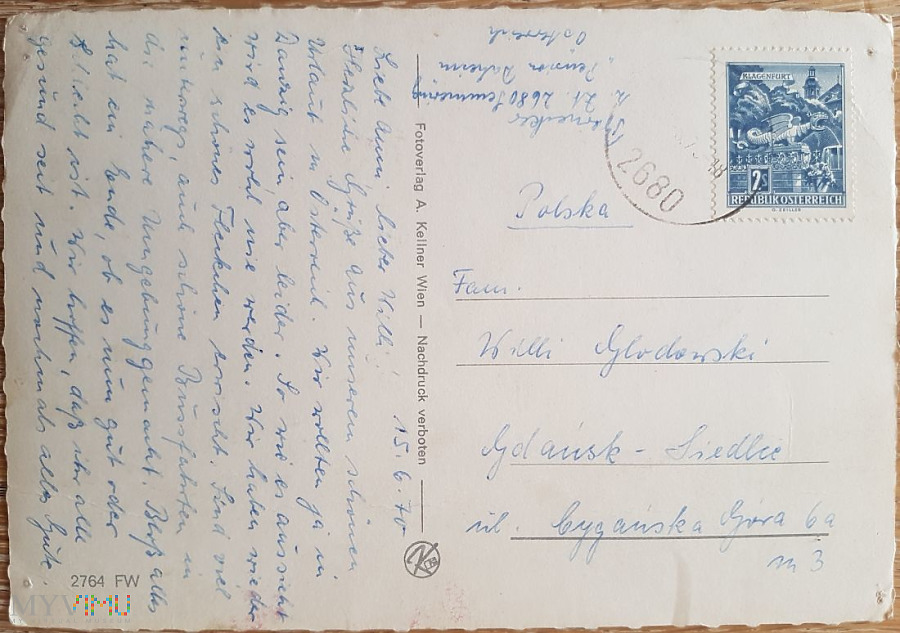 15.6.70
Liebe Anni, lieber Willi!
Herzliche Grüße aus unserem schönen
Urlaub in Österreich. Wir wollten ja in
Danzig sein, aber leider. So wie es aussieht
wird es wohl nie werden. Wir haben wieder
ein schönes Fleckchen erwischt. Sind viel
unterwegs, auch schöne Busfahrten in
die nähere Umgebung gemacht. Bloß alles
hat ein Ende, ob es nun gut oder
schlecht ist. Wir hoffen, daß ihr alle
gesund seid und nochmals alles Gute.
2764 FW
Fotoverlag A. Kellner Wien — Nachdruck verboten
z. Zt. 2680 Semmering
"Pension Daheim"
Österreich
2680
KLAGENFURT
2S
REPUBLIK ÖSTERREICH
Polska
Fam.
Willi Glodowski
Gdańsk - Siedlce
ul. Cygańska Góra 6a
m 3
MYVIMU